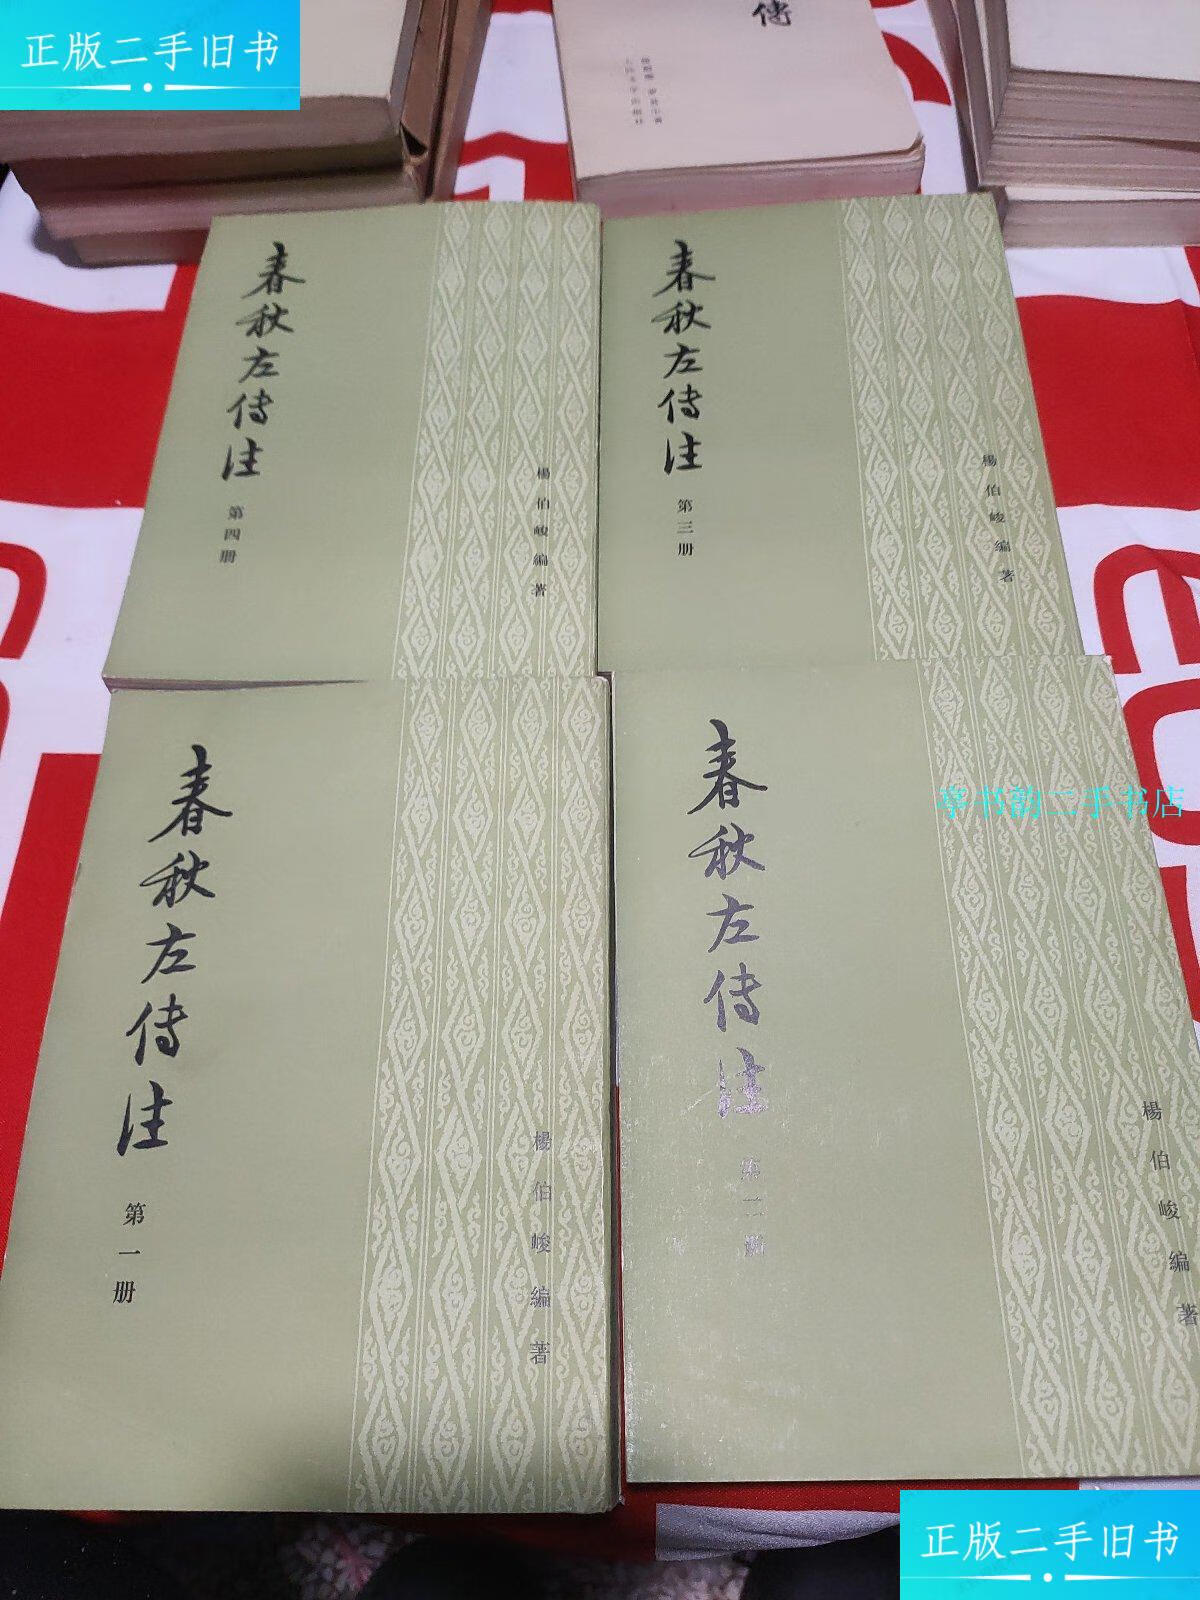 正版二手旧书
傳
春秋左傳注
第四册
楊伯峻編著
春秋左傳注
第三册
楊伯峻編著
春秋左傳注
第一册
楊伯峻編著
春秋左傳注
第二册
楊伯峻編著
亭书韵二手书店
正版二手旧书